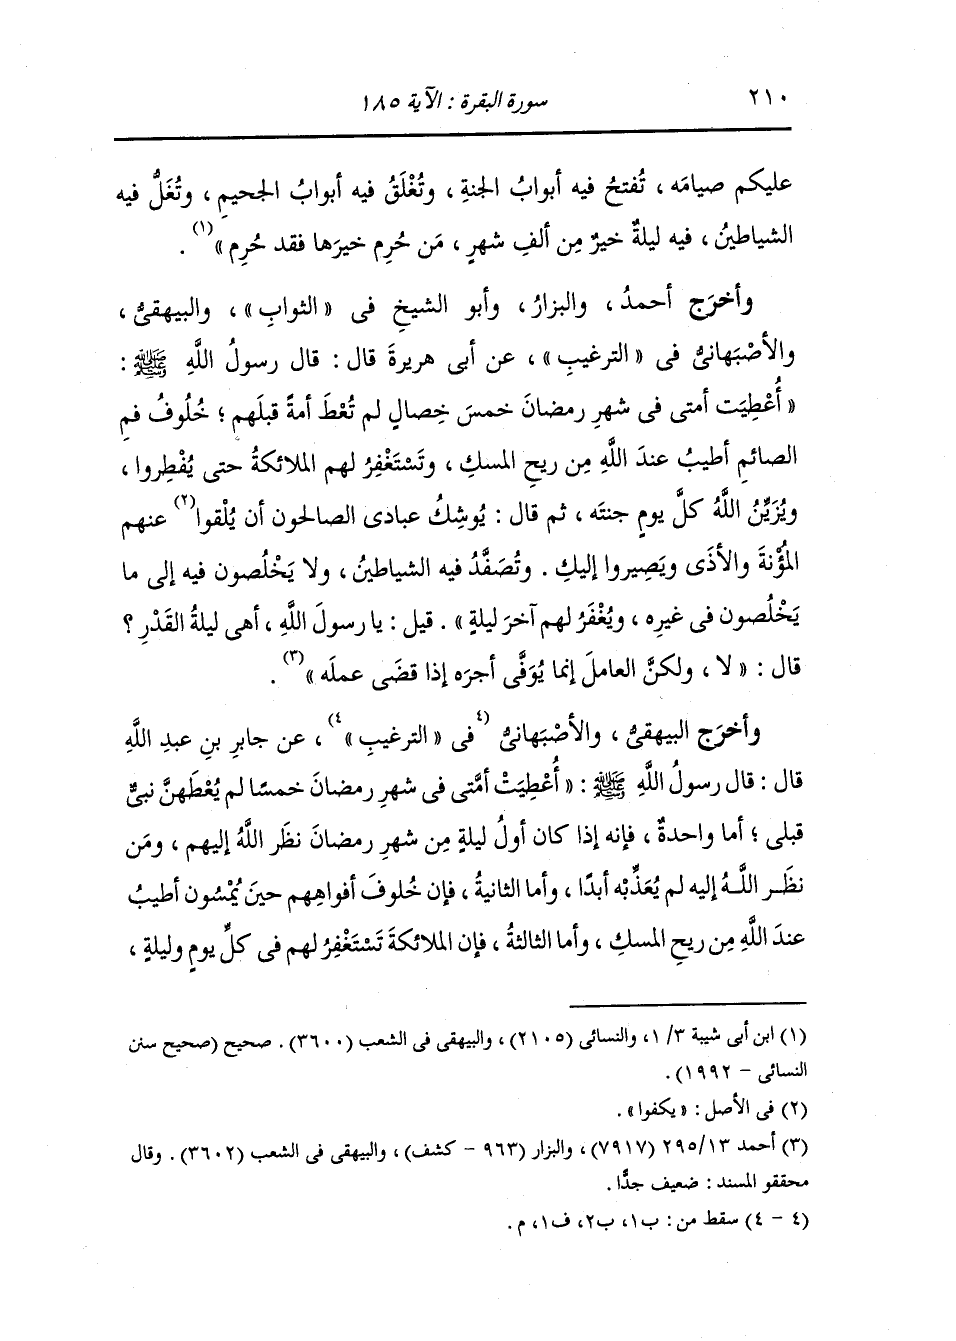 ٢١٠ سورة البقرة : الآية ١٨٥
عليكم صيامَه ، تُفتحُ فيه أبوابُ الجنةِ ، وتُغْلَقُ فيه أبوابُ الجحيمِ ، وتُغَلُّ فيه
الشياطينُ ، فيه ليلةٌ خيرٌ مِن ألفِ شهرٍ ، مَن حُرِم خيرَها فقد حُرِم »(١) .
وأخرَج أحمدُ ، والبزارُ ، وأبو الشيخِ فى « الثوابِ » ، والبيهقىُّ ،
والأصْبَهانىُّ فى « الترغيبِ » ، عن أبى هريرةَ قال : قال رسولُ اللَّهِ ﷺ :
« أُعْطِيَت أمتى فى شهرِ رمضانَ خمسَ خِصالٍ لم تُعْطَ أمةٌ قبلَهم ؛ خُلُوفُ فمِ
الصائمِ أطيبُ عندَ اللَّهِ مِن ريحِ المسكِ ، وتَسْتَغْفِرُ لهم الملائكةُ حتى يُفْطِروا ،
ويُزَيِّنُ اللَّهُ كلَّ يومٍ جنتَه ، ثم قال : يُوشِكُ عبادى الصالحون أن يُلْقوا(٢) عنهم
المُؤْنةَ والأذَى ويَصِيروا إليكِ . وتُصَفَّدُ فيه الشياطينُ ، ولا يَخْلُصون فيه إلى ما
يَخْلُصون فى غيرِه ، ويُغْفَرُ لهم آخرَ ليلةٍ » . قيل : يا رسولَ اللَّهِ ، أهى ليلةُ القَدْرِ ؟
قال : « لا ، ولكنَّ العاملَ إنما يُوَفَّى أجرَه إذا قضَى عملَه »(٣) .
وأخرَج البيهقىُّ ، والأصْبَهانىُّ (٤فى « الترغيبِ »٤) ، عن جابرِ بنِ عبدِ اللَّهِ
قال : قال رسولُ اللَّهِ ﷺ : « أُعْطِيَتْ أمَّتى فى شهرِ رمضانَ خمسًا لم يُعْطَهنَّ نبىٌّ
قبلى ؛ أما واحدةٌ ، فإنه إذا كان أولُ ليلةٍ مِن شهرِ رمضانَ نظَر اللَّهُ إليهم ، ومَن
نظَر اللَّهُ إليه لم يُعَذِّبْه أبدًا ، وأما الثانيةُ ، فإن خُلوفَ أفواهِهم حينَ يُمْسُون أطيبُ
عندَ اللَّهِ مِن ريحِ المسكِ ، وأما الثالثةُ ، فإن الملائكةَ تَسْتَغْفِرُ لهم فى كلِّ يومٍ وليلةٍ ،
(١) ابن أبى شيبة ٣/ ١، والنسائى (٢١٠٥) ، والبيهقى فى الشعب (٣٦٠٠) . صحيح (صحيح سنن
النسائى - ١٩٩٢) .
(٢) فى الأصل : « يكفوا » .
(٣) أحمد ٢٩٥/١٣ (٧٩١٧) ، والبزار (٩٦٣ - كشف) ، والبيهقى فى الشعب (٣٦٠٢) . وقال
محققو المسند : ضعيف جدًّا .
(٤ - ٤) سقط من : ب١، ب٢، ف١، م .